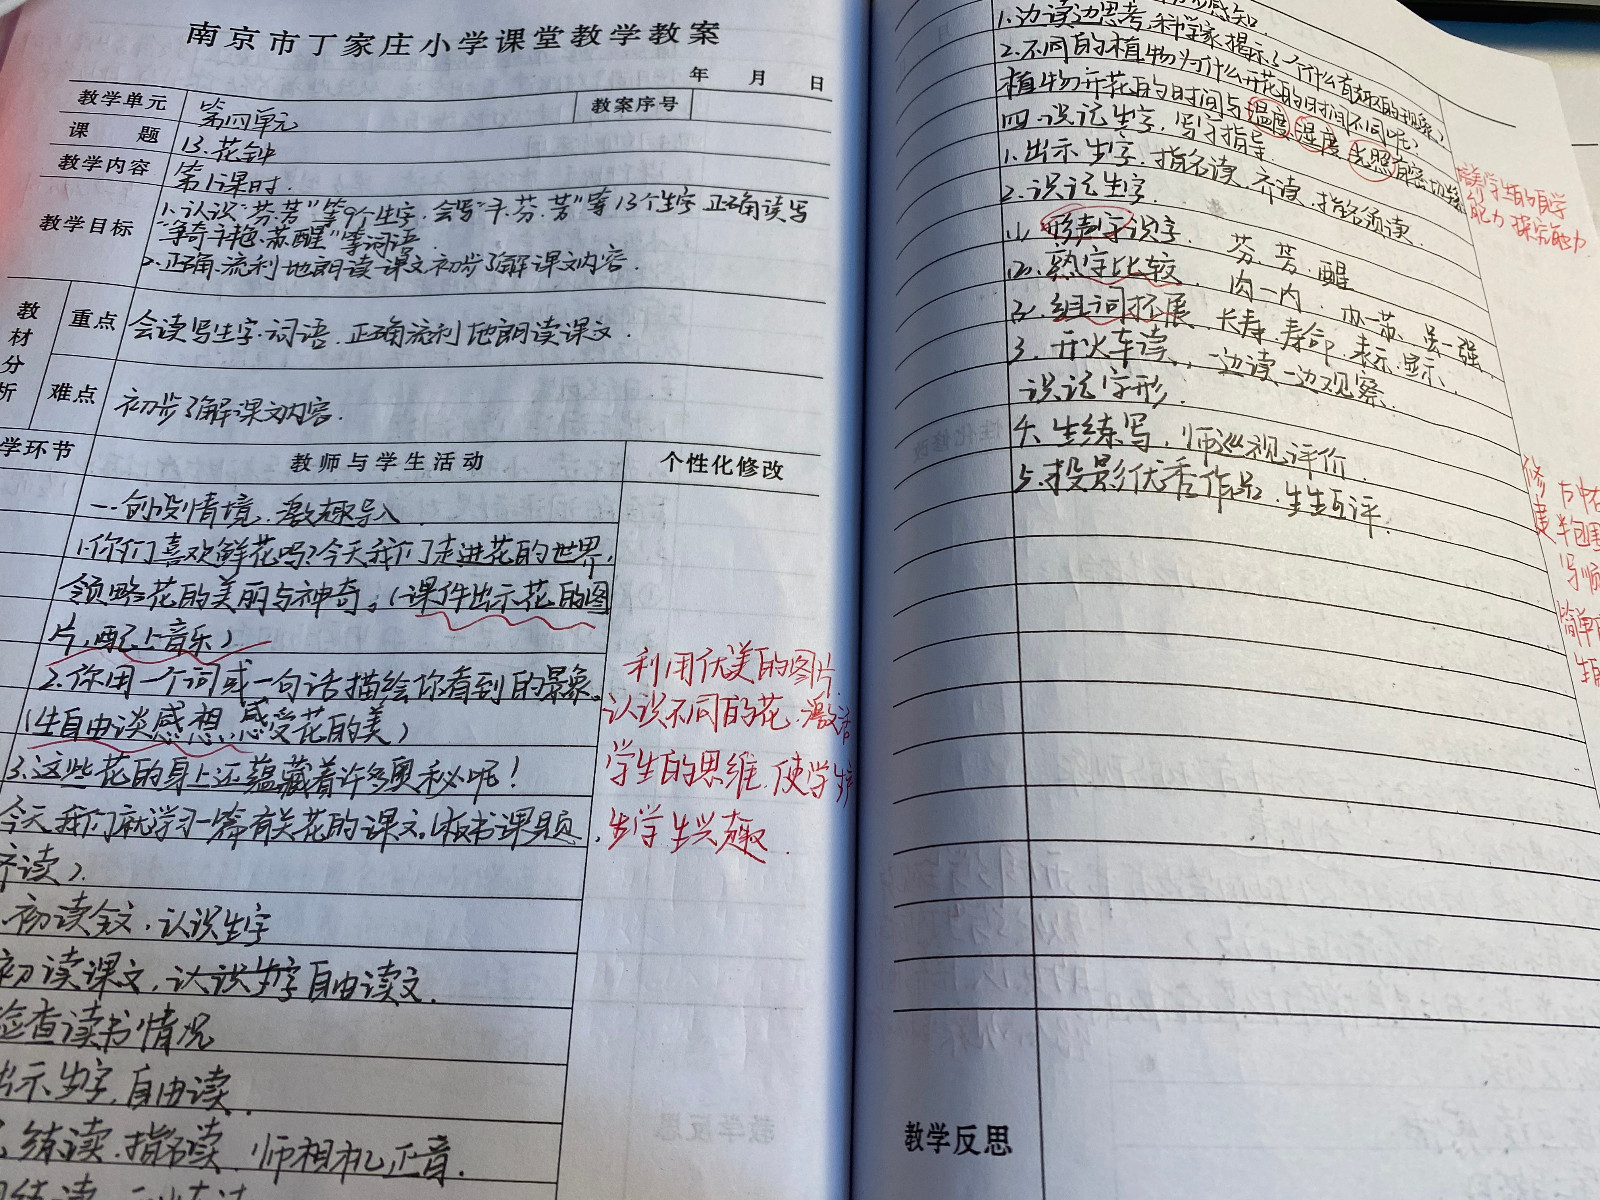 南京市丁家庄小学课堂教学教案
年 月 日
教学单元 第四单元 教案序号
课题 13.花钟
教学内容 第1课时.
教学目标 1.认识"芬、芳"等9个生字.会写"斗、芬、芳"等13个生字 正确读写
"争奇斗艳、苏醒"等词语.
2.正确.流利地朗读课文.初步了解课文内容.
教材分析
重点 会读写生字.词语.正确流利地朗读课文.
难点 初步了解课文内容.
学环节 教师与学生活动 个性化修改
一.创设情境.激趣导入
1.你们喜欢鲜花吗?今天我们走进花的世界,
领略花的美丽与神奇。(课件出示花的图
片,配上音乐)
2.你用一个词或一句话描绘你看到的景象。
(生自由谈感想,感受花的美)
3.这些花的身上还蕴藏着许多奥秘呢!
今天我们就学习一篇有关花的课文。(板书课题,
齐读).
初读全文,认识生字
初读课文,认识生字 自由读文.
检查读书情况
出示生字,自由读.
练读.指名读.师相机正音.
利用优美的图片.
认识不同的花,激活
学生的思维.使学
生学生兴趣.
感知
1.边读边思考,科学家揭示了个什么有趣的现象?
2.不同的植物为什么开花的时间不同呢?
植物开花的时间与温度、湿度、光照有密切
四.识记生字,写字指导.
1.出示生字.指名读.齐读.指名领读.
2.识记生字.
(1).形声字识字. 芬 芳.醒
(2).熟字比较. 肉—内. 办—苏. 虽—强
(3).组词拓展. 长寿.寿命.表示.显示.
3.开火车读.一边读一边观察.
识记字形.
4.生练写,师巡视评价.
5.投影优秀作品.生生互评.
培养学生的自学
能力 探究能力.
教学反思